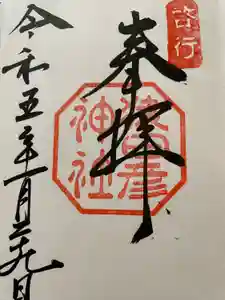 啓行
奉拝
猿田彦
神社
令和五年一月二十九日